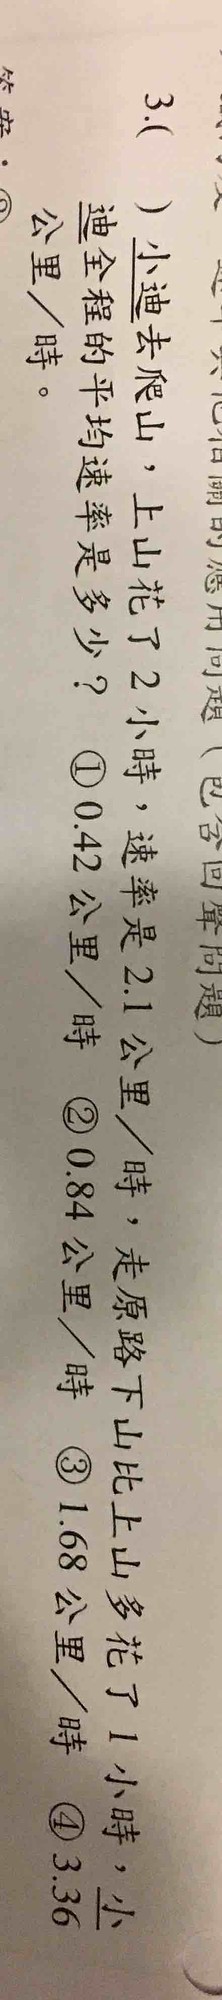 的應用問題(包含回聲問題)
3.( )小迪去爬山,上山花了2小時,速率是2.1公里/時,走原路下山比上山多花了1小時,小
迪全程的平均速率是多少? ①0.42公里/時 ②0.84公里/時 ③1.68公里/時 ④3.36
公里/時。